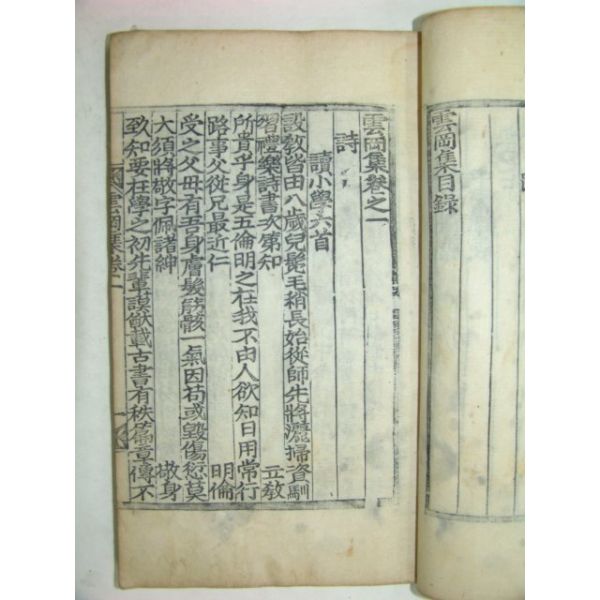 雲岡集目錄
雲岡集卷之一
詩
讀小學六首
設教皆由八歲兒髧毛稍長始從師先將灑掃資馴
習禮樂詩書次第知 立敎
所貴乎身是五倫明之在我不由人欲知日用常行
路事父從兄最近仁 明倫
受之父母有吾身膚髮筋骸一氣因苟或毁傷愆莫
大須將敬字佩諸紳 敬身
致知要在學之初先輩謨猷載古書有秩篇章傳不
雲岡集卷一
一